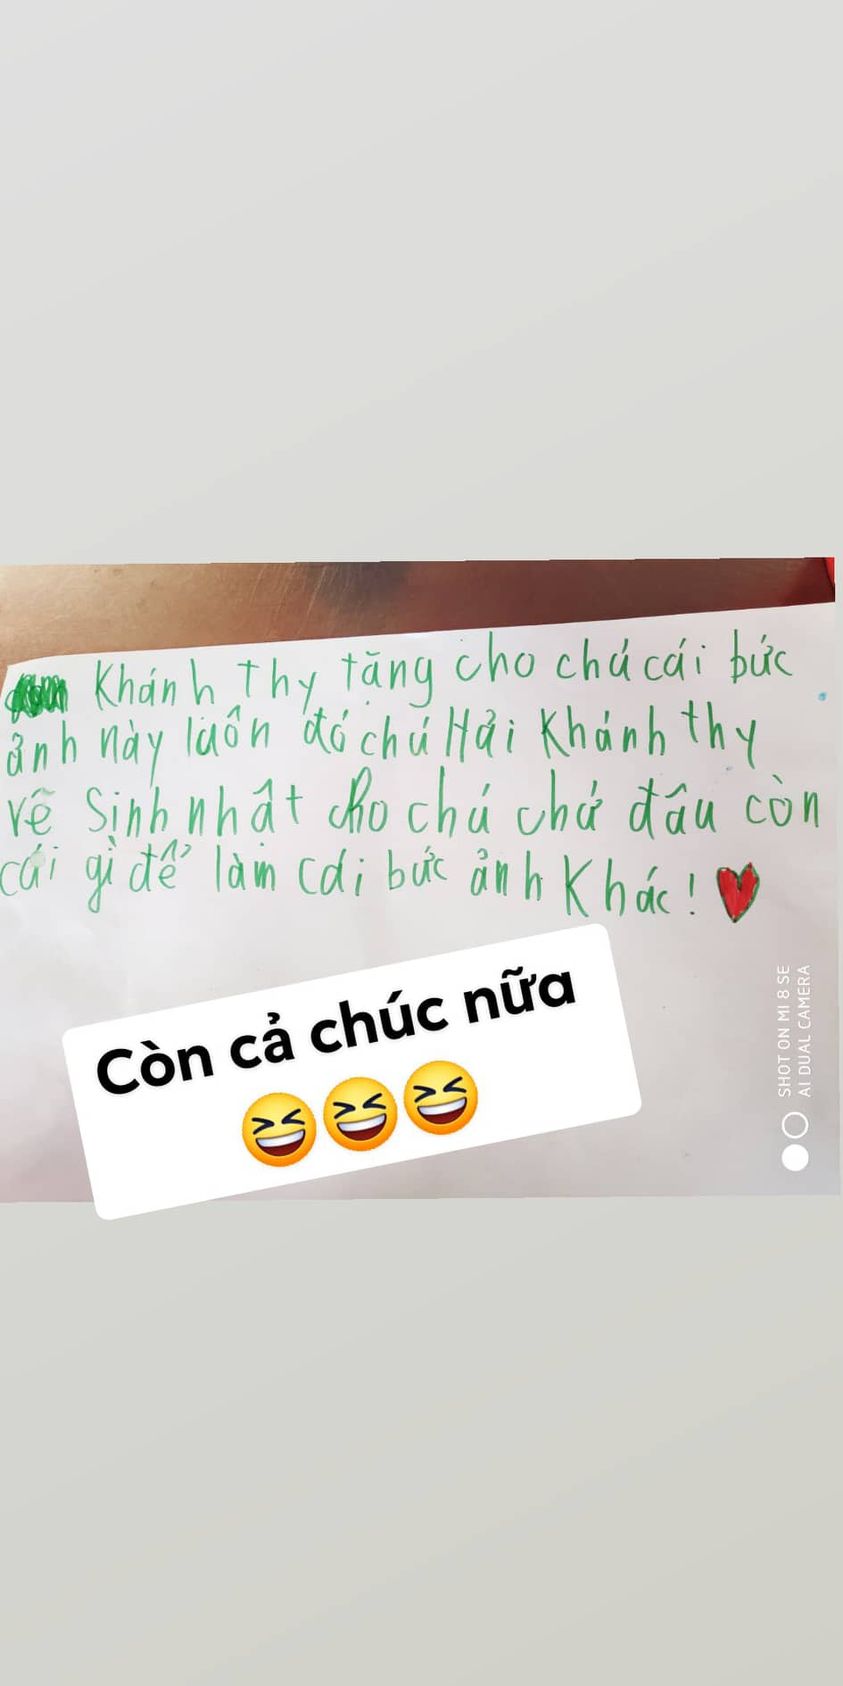 Khánh thy tặng cho chú cái bức
ảnh này luôn đó chú Hải Khánh thy
vẽ Sinh nhật cho chú chứ đâu còn
cái gì để làm cái bức ảnh Khác!
Còn cả chúc nữa
😆😆😆
SHOT ON MI 8 SE
AI DUAL CAMERA